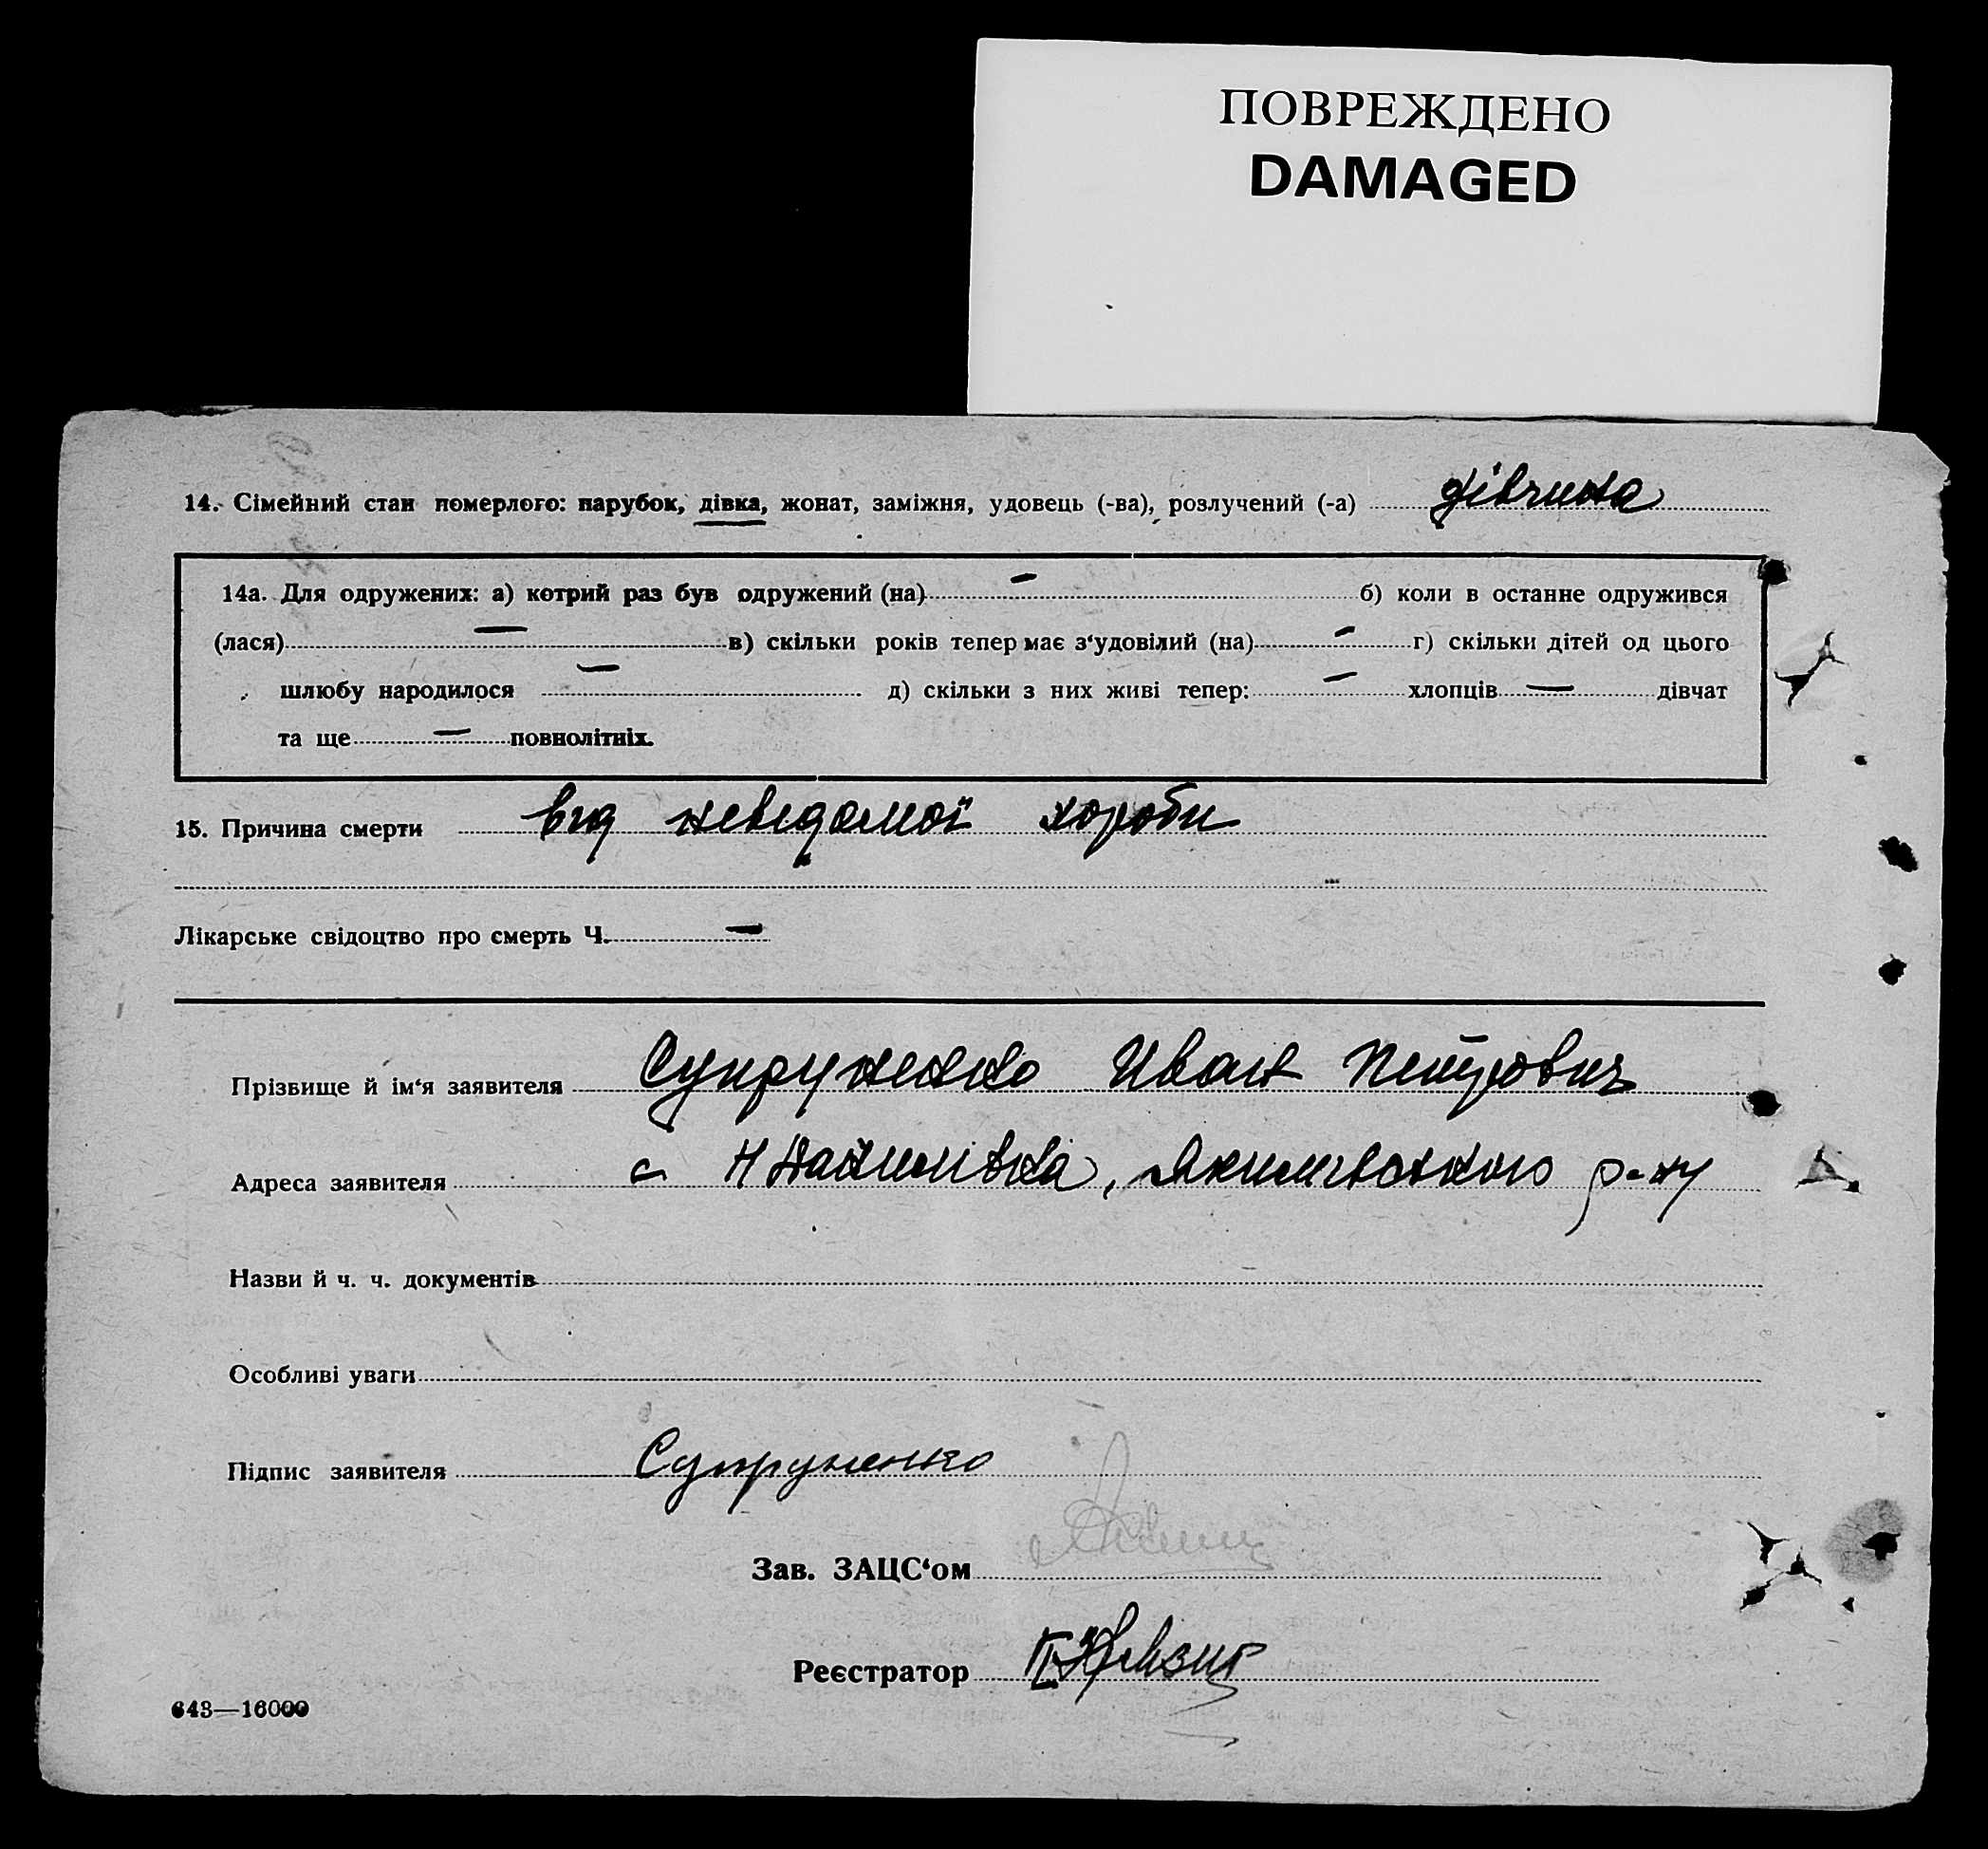 ПОВРЕЖДЕНО
DAMAGED
14. Сімейний стан померлого: парубок, дівка, жонат, заміжня, удовець (-ва), розлучений (-а) дівчина
14а. Для одружених: а) котрий раз був одружений (на) – б) коли в останне одружився
(лася) – в) скільки років тепер має з‘удовілий (на) – г) скільки дітей од цього
шлюбу народилося – д) скільки з них живі тепер: – хлопців – дівчат
та ще – повнолітніх.
15. Причина смерти від невідомої хороби
Лікарське свідоцтво про смерть Ч. –
Прізвище й ім‘я заявителя Супруненко Иван Петрович
Адреса заявителя с Н Якимівського р-ну
Назви й ч. ч. документів
Особливі уваги
Підпис заявителя Супруненко
Зав. ЗАЦС‘ом
Реєстратор
643—16000